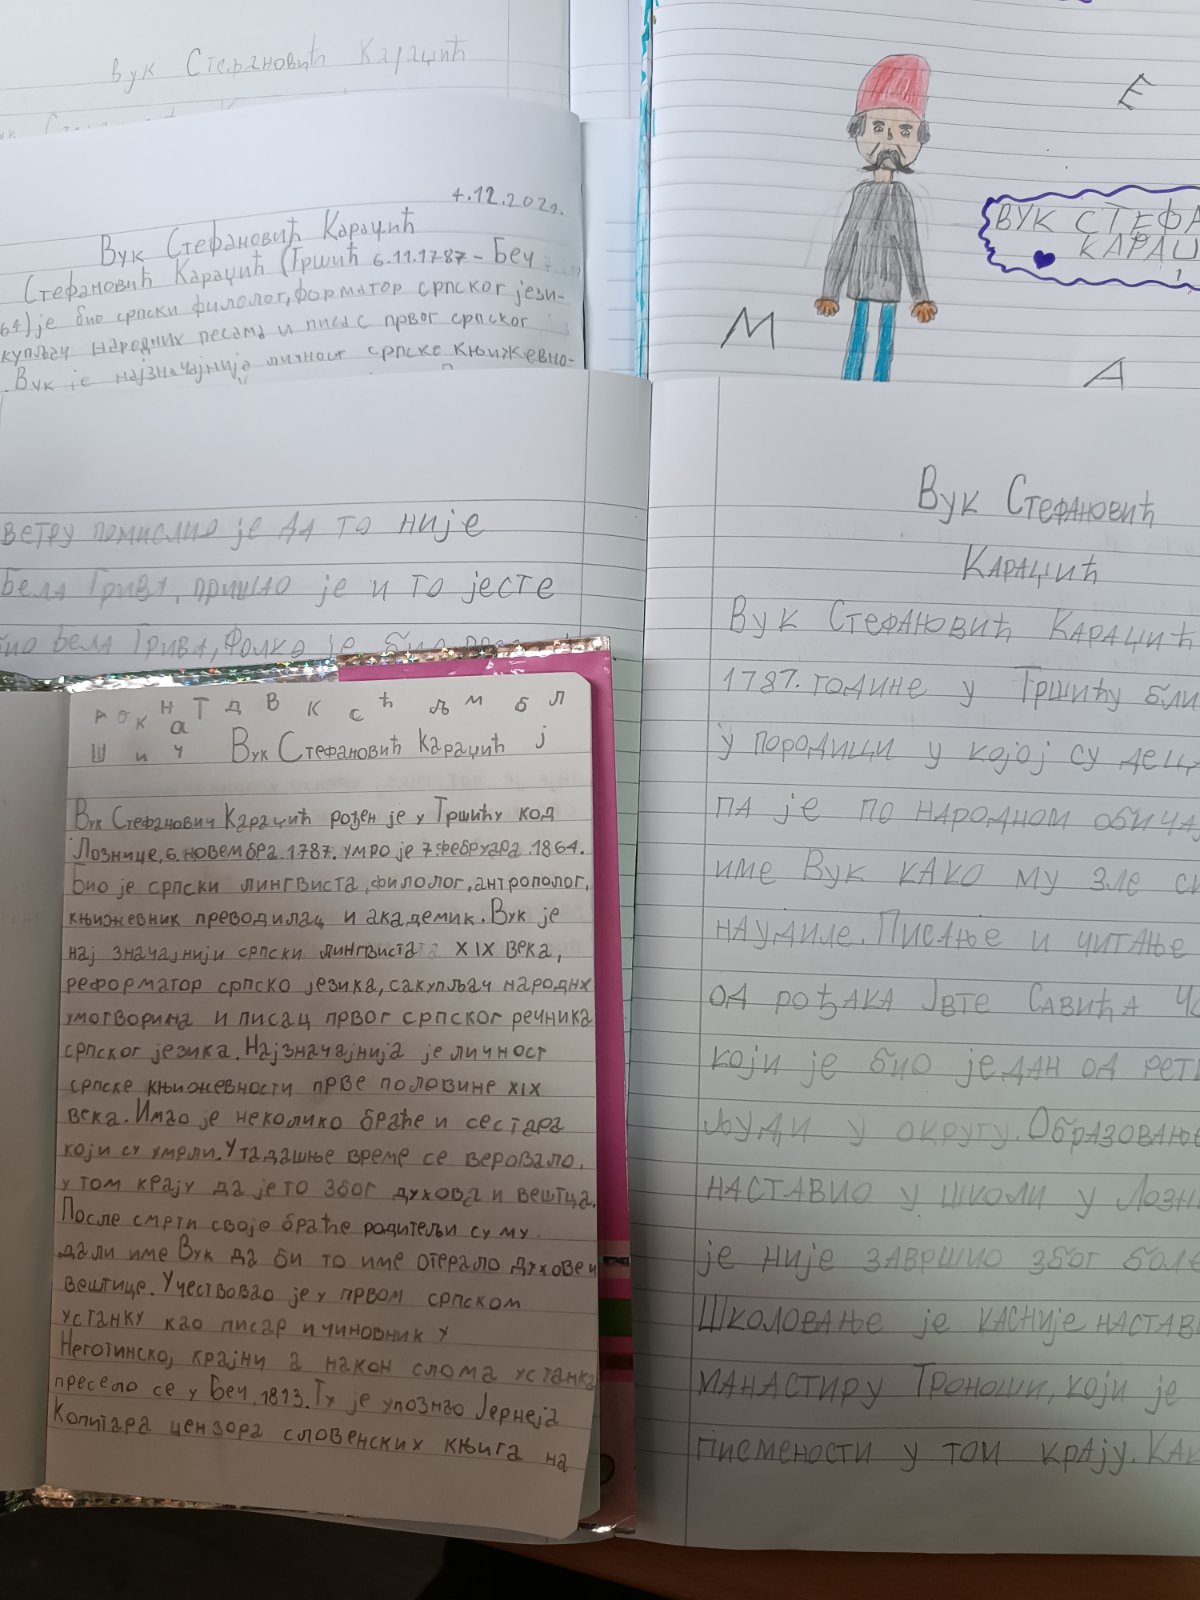 Вук Стефановић Караџић
4.12.2021.
Вук Стефановић Караџић
Стефановић Караџић (Тршић 6.11.1787 - Беч
64) је био српски филолог, форматор српског јези-
купљач народних песама и писас првог српског
. Вук је најзначајнија личност српске књижевно-
Е
ВУК СТЕФА
КАРАЏ
М
А
ветру помислио је да то није
Бела Грива, пришао је и то јесте
био Бела Грива, Фолко је био
Вук Стефановић
Караџић
Вук Стефановић Караџић
1787. године у Тршићу бли
у породици у којој су деца
па је по народном обича
име Вук како му зле си
наудиле. Писање и читање
од рођака Јвте Савића
који је био један од рет
људи у округу. Образовање
наставио у школи у Лозн
је није завршио због боле
Школовање је касније настави
манастиру Троноши, који је
писмености у том крају. Как
р о к н а т д в к с ћ љ м б л
ш и ч Вук Стефановић Караџић ј
Вук Стефанович Караџић рођен је у Тршићу код
Лознице, 6. новембра. 1787. умро је 7 фебруара. 1864.
Био је српски лингвиста, филолог, антрополог,
књижевник преводилац и академик. Вук је
нај значајнији српски лингвиста XIX века,
реформатор српско језика, сакупљач народнх
умотворина и писац првог српског речника
српског језика. Најзначајнија је личност
српске књижевности прве половине XIX
века. Имао је неколико браће и сестара
који су умрли. У тадашње време се веровало,
у том крају да је то због духова и вештца.
После смрти своје браће родитељи су му
дали име Вук да би то име отерало духове и
вештице. Учествовао је у првом српском
устанку као писар и чиновник у
Неготинској крајни а након слома устанка
пресело се у Беч, 1813. Ту је упознао Јернеја
Копитара цензора словенских књига на